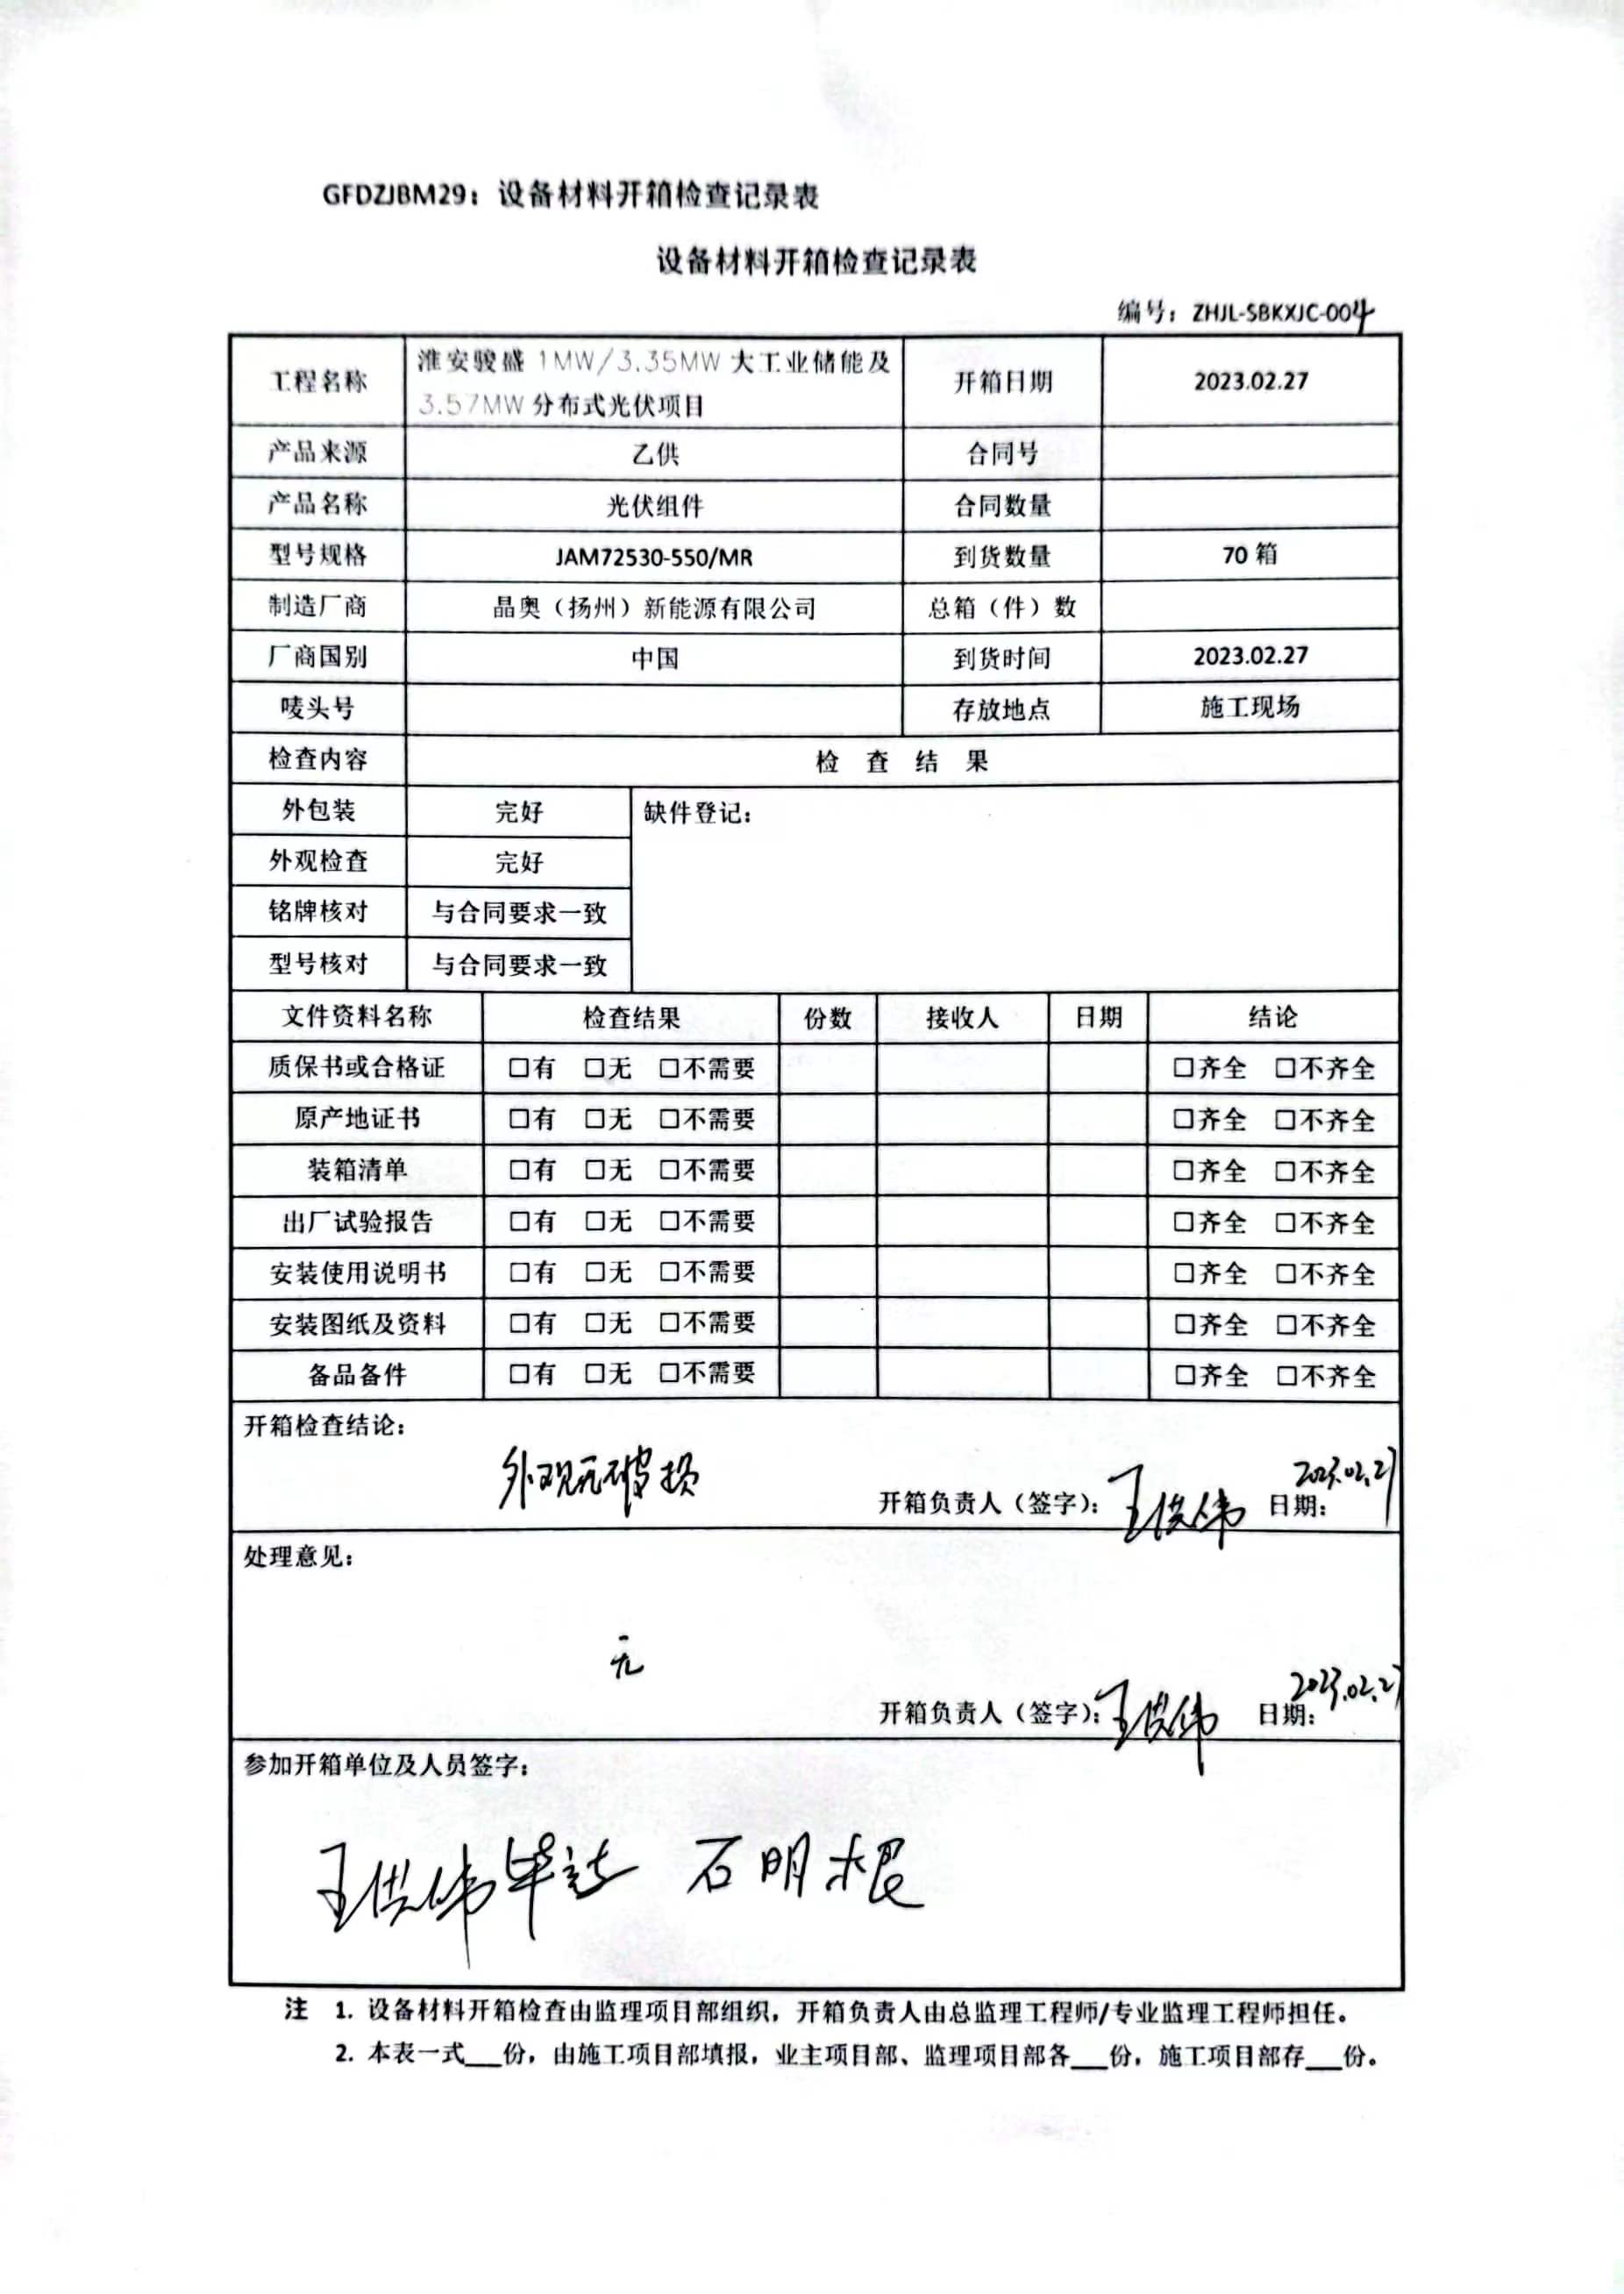 GFDZJBM29：设备材料开箱检查记录表
设备材料开箱检查记录表
编号：ZHJL-SBKXJC-004
工程名称 淮安骏盛 1MW/3.35MW 大工业储能及 开箱日期 2023.02.27
3.57MW 分布式光伏项目
产品来源 乙供 合同号
产品名称 光伏组件 合同数量
型号规格 JAM72530-550/MR 到货数量 70 箱
制造厂商 晶奥（扬州）新能源有限公司 总箱（件）数
厂商国别 中国 到货时间 2023.02.27
唛头号 存放地点 施工现场
检查内容 检 查 结 果
外包装 完好 缺件登记：
外观检查 完好
铭牌核对 与合同要求一致
型号核对 与合同要求一致
文件资料名称 检查结果 份数 接收人 日期 结论
质保书或合格证 □有 □无 □不需要 □齐全 □不齐全
原产地证书 □有 □无 □不需要 □齐全 □不齐全
装箱清单 □有 □无 □不需要 □齐全 □不齐全
出厂试验报告 □有 □无 □不需要 □齐全 □不齐全
安装使用说明书 □有 □无 □不需要 □齐全 □不齐全
安装图纸及资料 □有 □无 □不需要 □齐全 □不齐全
备品备件 □有 □无 □不需要 □齐全 □不齐全
开箱检查结论：
外观无破损
开箱负责人（签字）： 日期： 2023.02.27
处理意见：
无
开箱负责人（签字）： 日期： 2023.02.27
参加开箱单位及人员签字：
石明根
注 1. 设备材料开箱检查由监理项目部组织，开箱负责人由总监理工程师/专业监理工程师担任。
2. 本表一式___份，由施工项目部填报，业主项目部、监理项目部各___份，施工项目部存___份。